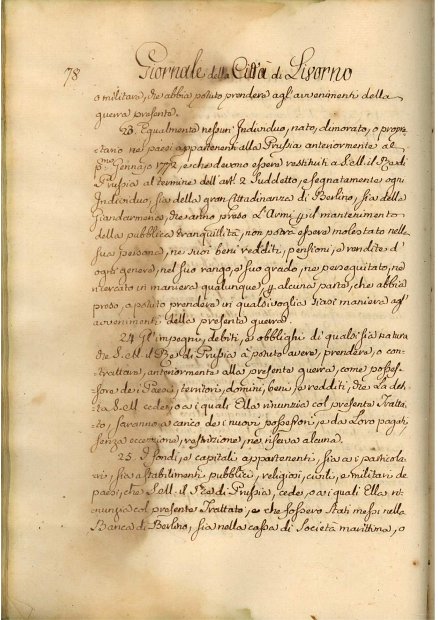 78
Giornale della Città di Livorno
o militare, che abbia potuto prendere agl'avvenimenti della
guerra presente.
23. Egualmente nessun Individuo, nato, dimorato, o propie-
tario ne paesi appartenenti alla Prussia anteriormente al
p.mo Gennajo 1772, e che devono essere restituiti a S. M. il Re di
Prussia al termine dell'art.° 2 suddetto, e segnatamente ogni
Individuo, sia della gran Cittadinanza di Berlino, sia della
Giandarmeria, che anno preso l'Armi p il mantenimento
della pubblica tranquilità, non potrà essere molestato nella
sua persona, ne suoi beni redditi, pensioni, e rendite d'
ogni genere, nel suo rango, e suo grado, ne persequitato, ne
ricercato in maniera qualunque, p alcuna parte, che abbia
preso, o potuto prendere in qualsivoglia siasi maniera agl'
avvenimenti della presente guerra.
24. Gl'impegni, debiti, e obblighi di qualsisia natura
che S. M. il Re di Prussia à potuto avere, prendere, o con-
trattare, anteriormente alla presente guerra, come posses-
sore de Paesi, territori, domini, beni, e redditi, che la det-
ta S. M. cede, o a i quali Ella rinunzia col presente Tratta-
to, saranno a carico de i nuovi possessori, e da loro pagati,
senza eccezione, restrizione, ne riserva alcuna.
25. I fondi, e capitali appartenenti, sia a i particola-
ri, sia a stabilimenti pubblici, religiosi, civili, e militari de
paesi, che S. M. il Re di Prussia, cede, o a i quali Ella ri-
nunzia col presente Trattato, e che fossero stati messi nella
Banca di Berlino, sia nella cassa di Società marittima, o